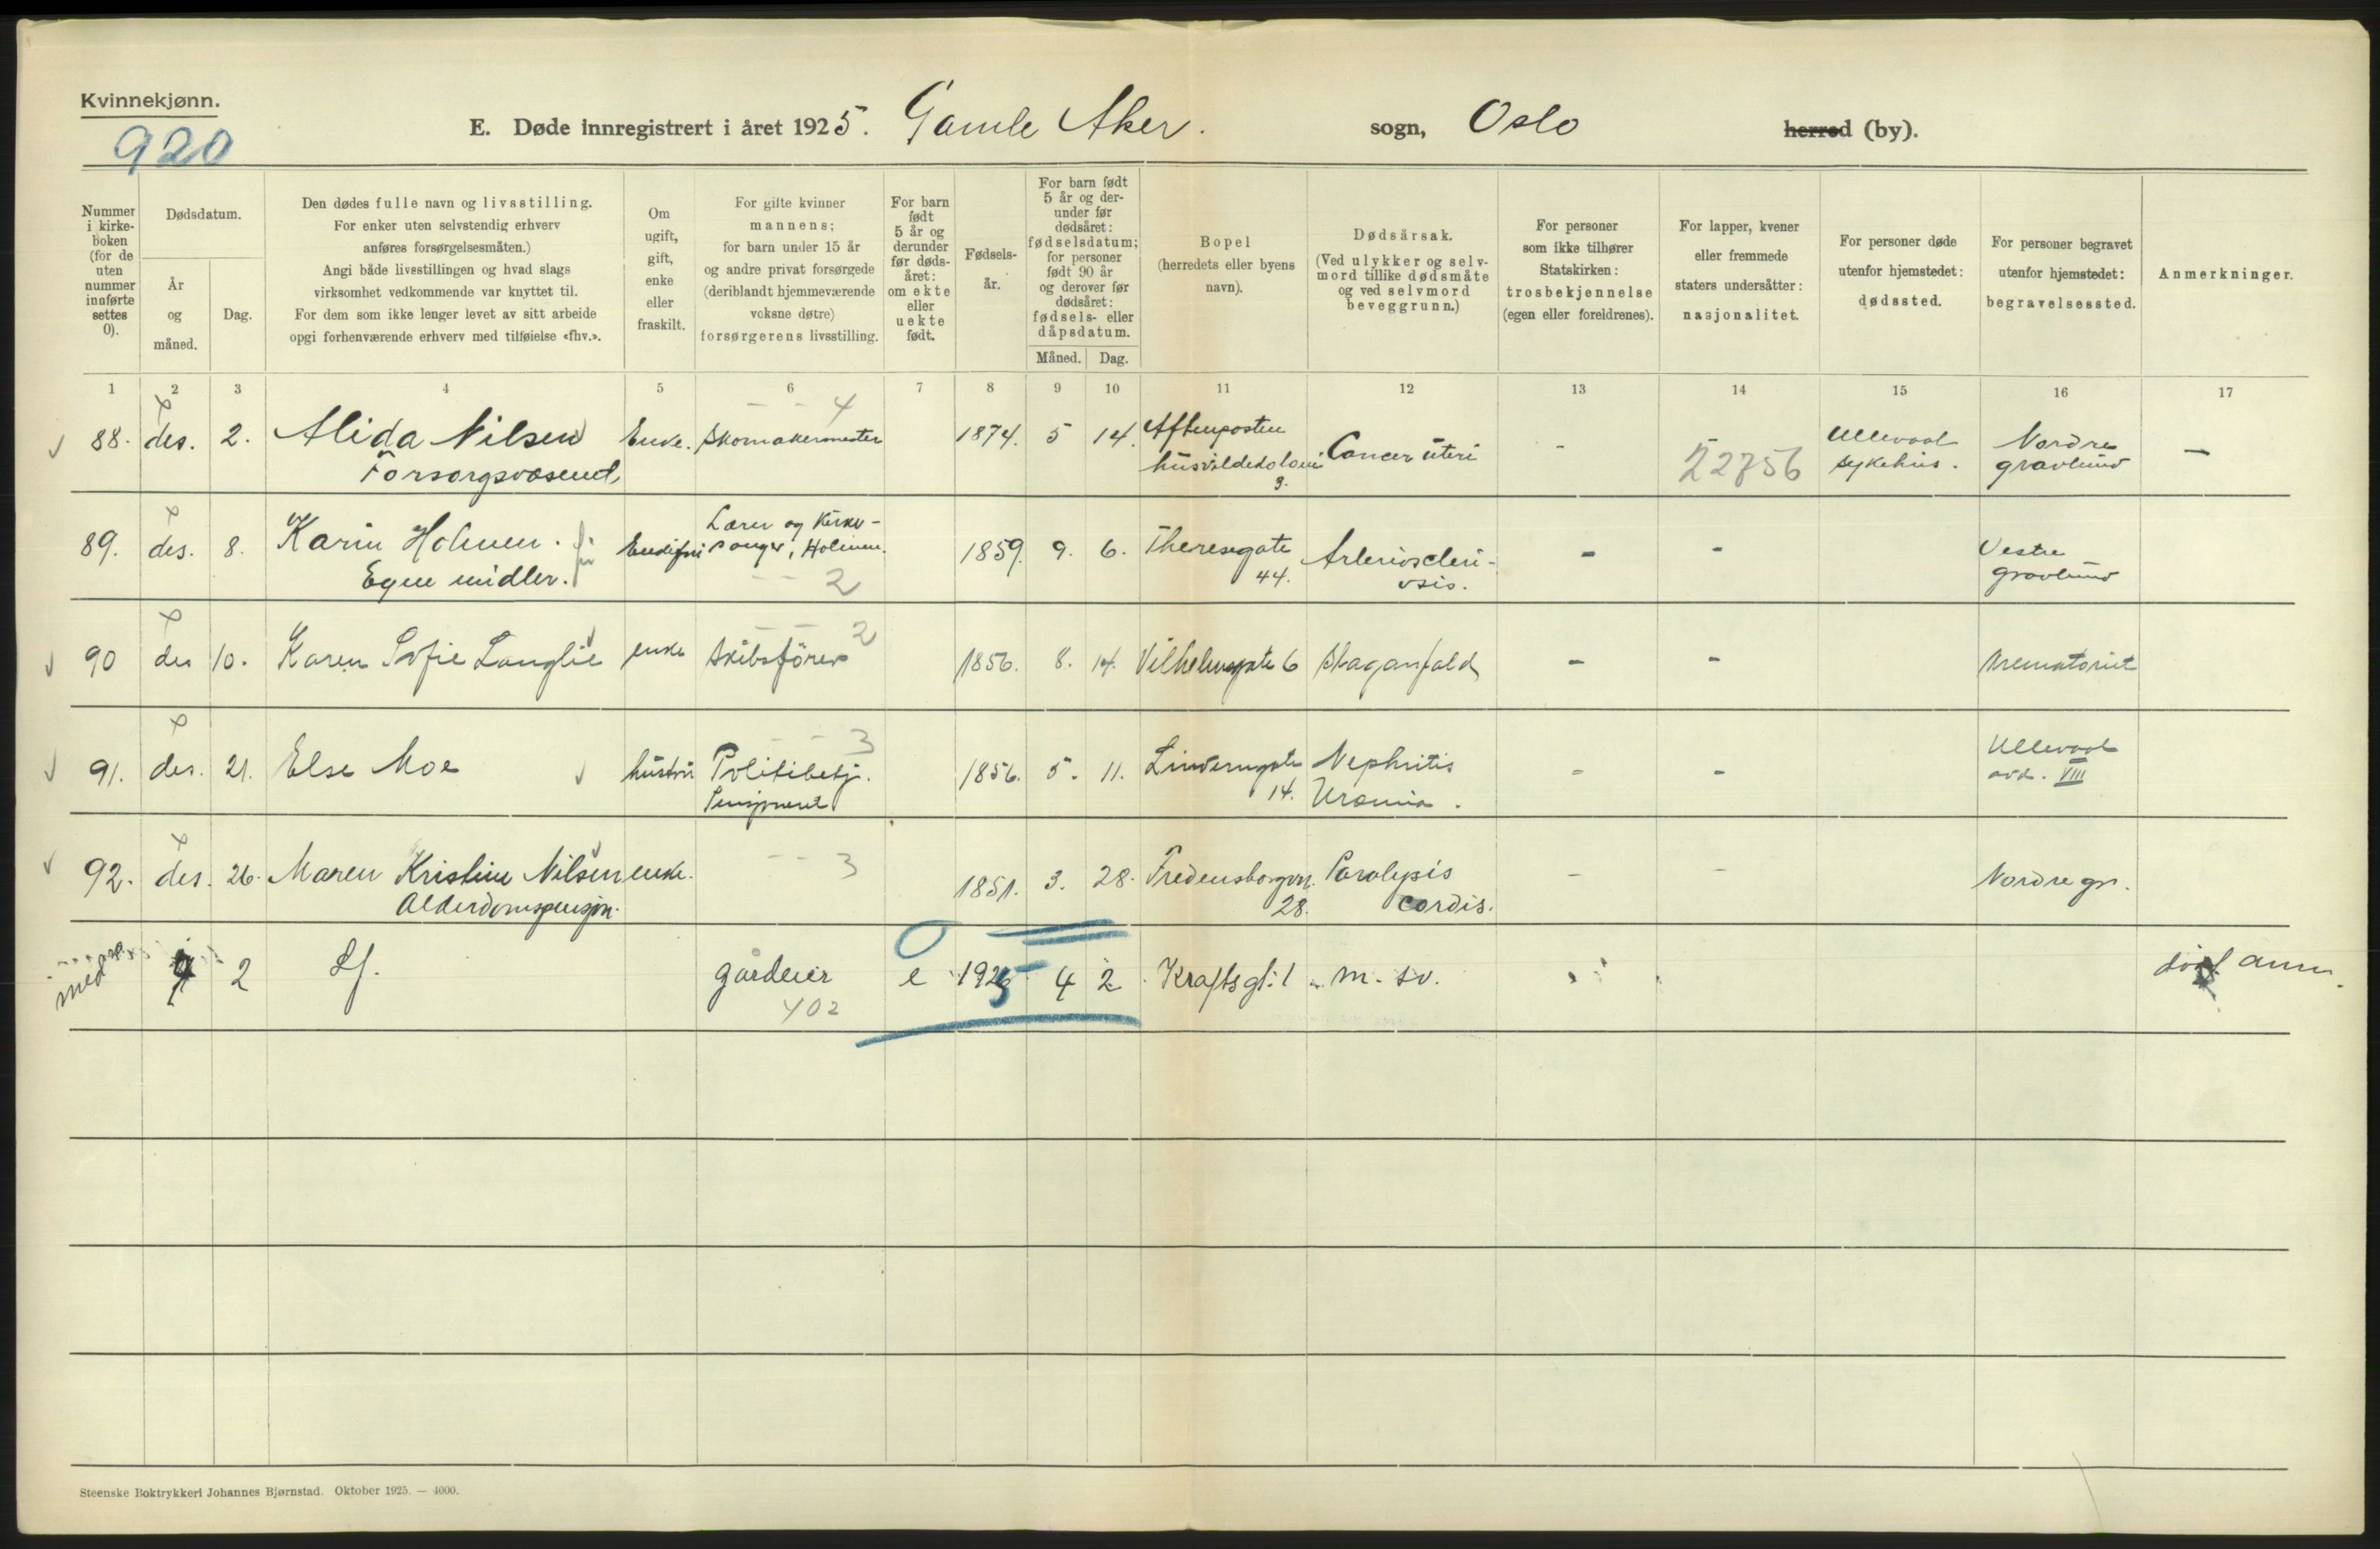 Kvinnekjønn.
920
E. Døde innregistrert i året 1925. Gamle Aker. sogn, Oslo herred (by).
Nummer i kirkeboken (for de uten nummer innførte settes 0).
Dødsdatum.
År og måned.
Dag.
Den dødes fulle navn og livsstilling.
For enker uten selvstendig erhverv
anføres forsørgelsesmåten.)
Angi både livsstillingen og hvad slags
virksomhet vedkommende var knyttet til.
For dem som ikke lenger levet av sitt arbeide
opgi forhenværende erhverv med tilføielse «fhv.».
Om ugift, gift, enke eller fraskilt.
For gifte kvinner
mannens;
for barn under 15 år
og andre privat forsørgede
(deriblandt hjemmeværende
voksne døtre)
forsørgerens livsstilling.
For barn født 5 år og derunder før dødsåret: om ekte eller uekte født.
Fødselsår.
For barn født 5 år og derunder før dødsåret: fødselsdatum; for personer født 90 år og derover før dødsåret: fødsels- eller dåpsdatum.
Måned. Dag.
Bopel
(herredets eller byens
navn).
Dødsårsak.
(Ved ulykker og selvmord tillike dødsmåte og ved selvmord beveggrunn.)
For personer
som ikke tilhører
Statskirken:
trosbekjennelse
(egen eller foreldrenes).
For lapper, kvener
eller fremmede
staters undersåtter:
nasjonalitet.
For personer døde
utenfor hjemstedet:
dødssted.
For personer begravet
utenfor hjemstedet:
begravelsessted.
Anmerkninger.
1 2 3 4 5 6 7 8 9 10 11 12 13 14 15 16 17
88. des. 2. Alida Nilsen Enke. Skomakermester 4 1874. 5 14. Aftenposten Cancer uteri - 22756 Ullevaal sykehus. Nordre gravlund -
Forsorgsvæsenet, 3.
89. des. 8. Karin Holmen. Lærer og Kirkesanger, Holmen. 1859. 9. 6. Theresegate 44. Arteriosclerosis. - - Vestre gravlund
Egne midler. 2
90 des 10. Karen Sofie Langlie enke Skibsfører 2 1856. 8. 14. Vilhelmsgate 6 Slaganfald - - Krematoriet
91. des. 21. Else Moe hustru Politibetj. 3 1856. 5. 11. Linderngate 14. Nephritis Uræmia. - - Ullevaal avd. VIII
Pensjonert
92. des. 26. Maren Kristine Nilsen enke. 3 1851. 3. 28. Fredensborgvn. 28. Paralysis cordis. - - Nordre gr.
Alderdomspensjon.
med 4 2 Lf. gårdeier e 1925 4 2 Kraftsgt. 1 m. sv.
402
Steenske Boktrykkeri Johannes Bjørnstad. Oktober 1925. — 4000.